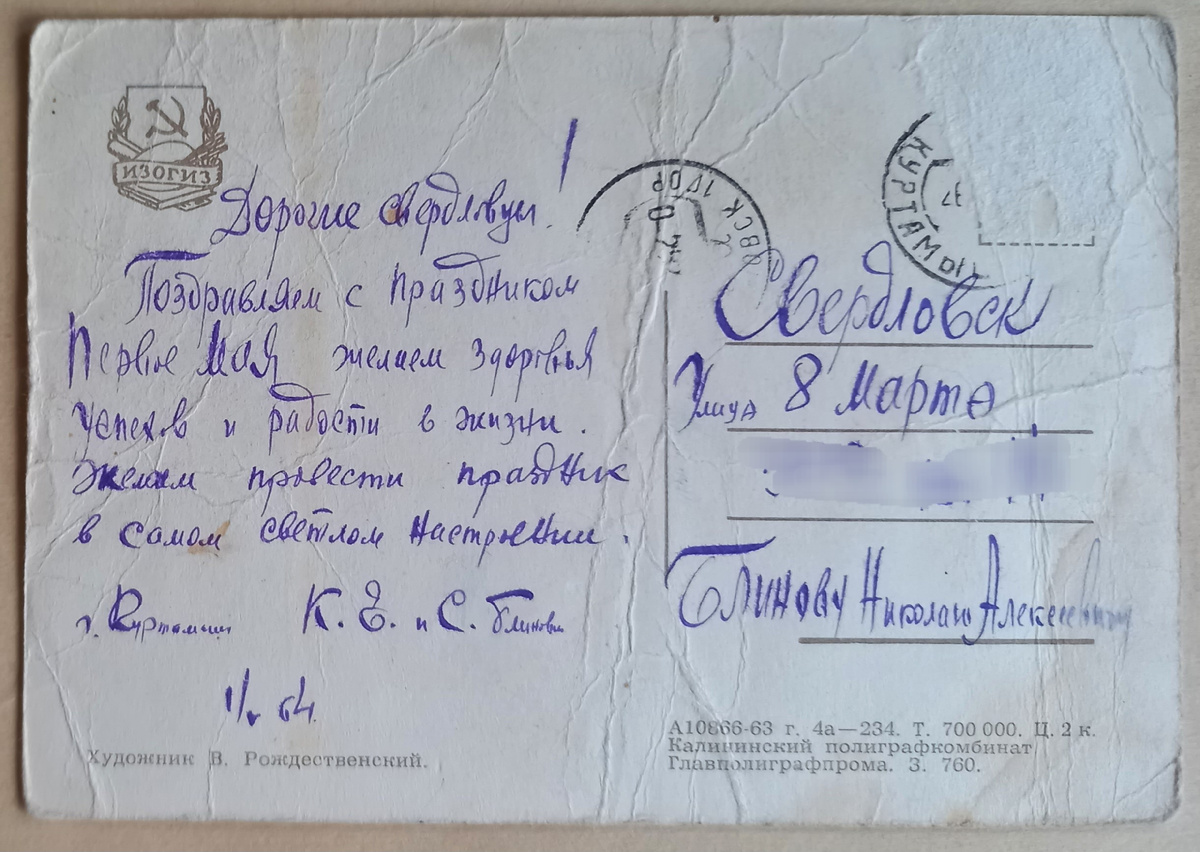 ИЗОГИЗ
Дорогие свердловцы!
Поздравляем с праздником
Первое Мая желаем здоровья
успехов и радости в жизни.
Желаем провести праздник
в самом светлом настроении.
г. Куртамыш К. Е. и С. Блиновы
1/V 64
Художник В. Рождественский.
ОВСК 1 ГОР
КУРТАМЫШ
Свердловск
Улица 8 Марта
Блинову Николаю Алексеевичу
А10866-63 г. 4а—234. Т. 700 000. Ц. 2 к.
Калининский полиграфкомбинат
Главполиграфпрома. З. 760.